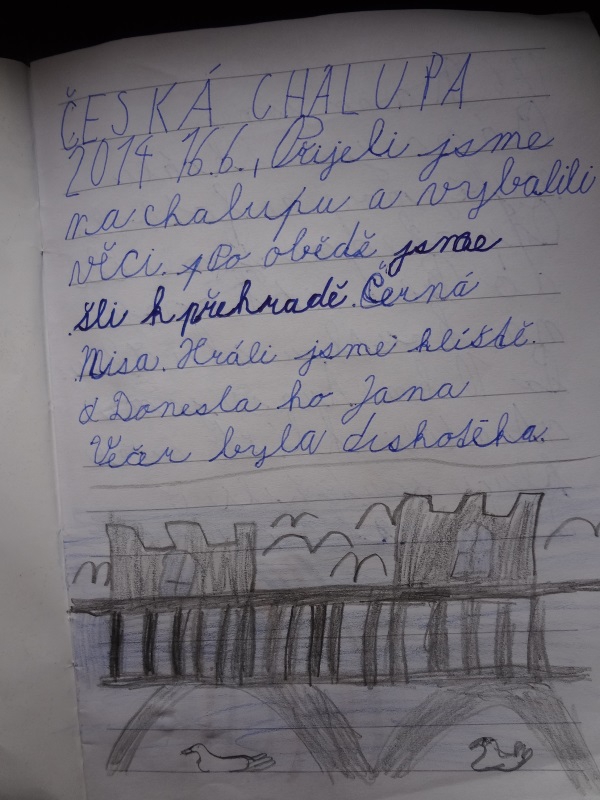 ČESKÁ CHALUPA
2014 16.6., Přijeli jsme
na chalupu a vybalili
věci. Po obědě jsme
šli k přehradě. Černá
Misa. Hráli jsme klíště.
Donesla ho Jana
Večer byla diskotéka.